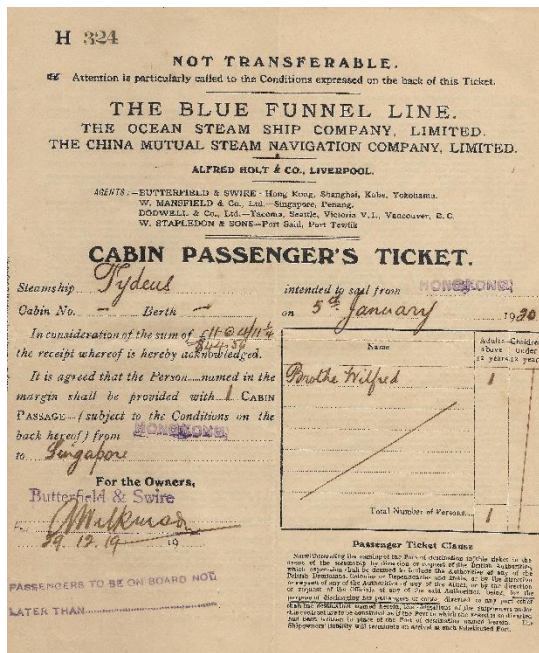 H 324
NOT TRANSFERABLE.
☞ Attention is particularly called to the Conditions expressed on the back of this Ticket.
THE BLUE FUNNEL LINE.
THE OCEAN STEAM SHIP COMPANY, LIMITED.
THE CHINA MUTUAL STEAM NAVIGATION COMPANY, LIMITED.
ALFRED HOLT & CO., LIVERPOOL.
AGENTS:—BUTTERFIELD & SWIRE - Hong Kong, Shanghai, Kobe, Yokohama.
W. MANSFIELD & Co., Ltd.—Singapore, Penang.
DODWELL & Co., Ltd.—Tacoma, Seattle, Victoria V.I., Vancouver, B.C.
W. STAPLEDON & SONS—Port Said, Port Tewfik
CABIN PASSENGER'S TICKET.
Steamship Tydeus
Cabin No. — Berth —
In consideration of the sum of £11 @ 4/11¼
$44.56
the receipt whereof is hereby acknowledged.
It is agreed that the Person named in the
margin shall be provided with 1 CABIN
PASSAGE (subject to the Conditions on the
back hereof) from HONGKONG
to Singapore
For the Owners,
Butterfield & Swire
Wilkinson
29.12.19 19
PASSENGERS TO BE ON BOARD NOT
LATER THAN
intended to sail from HONGKONG
on 5th January 1920
Name
Adults above 12 years
Children under 12 years
Brothe Wilfred 1
Total Number of Persons 1
Passenger Ticket Clause